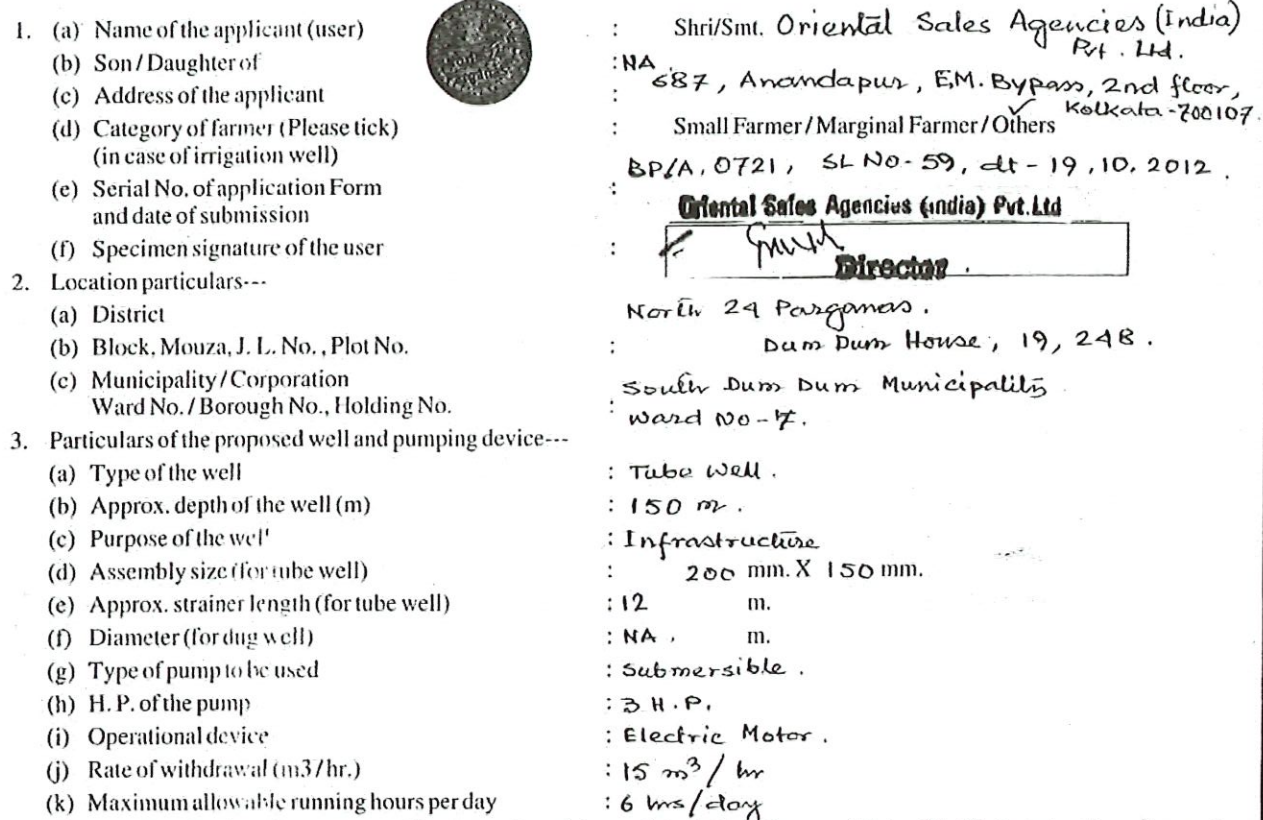 1. (a) Name of the applicant (user) : Shri/Smt. Oriental Sales Agencies (India) Pvt. Ltd.
(b) Son/Daughter of : NA
(c) Address of the applicant : 687, Anandapur, E.M. Bypass, 2nd floor, Kolkata-700107.
(d) Category of farmer (Please tick) : Small Farmer/Marginal Farmer/Others ✓
(in case of irrigation well)
(e) Serial No. of application Form : BP/A, 0721, SL NO-59, dt-19.10.2012.
and date of submission
Oriental Sales Agencies (india) Pvt.Ltd
(f) Specimen signature of the user :
Director.
2. Location particulars---
(a) District North 24 Parganas.
(b) Block, Mouza, J. L. No., Plot No. : Dum Dum House, 19, 248.
(c) Municipality/Corporation South Dum Dum Municipality
Ward No./Borough No., Holding No. : Ward No-7.
3. Particulars of the proposed well and pumping device---
(a) Type of the well : Tube Well.
(b) Approx. depth of the well (m) : 150 m.
(c) Purpose of the wel' : Infrastructure
(d) Assembly size (for tube well) : 200 mm. X 150 mm.
(e) Approx. strainer length (for tube well) : 12 m.
(f) Diameter (for dug well) : NA, m.
(g) Type of pump to be used : Submersible.
(h) H. P. of the pump : 3 H.P.
(i) Operational device : Electric Motor.
(j) Rate of withdrawal (m3/hr.) : 15 m³/hr
(k) Maximum allowable running hours per day : 6 hrs/day